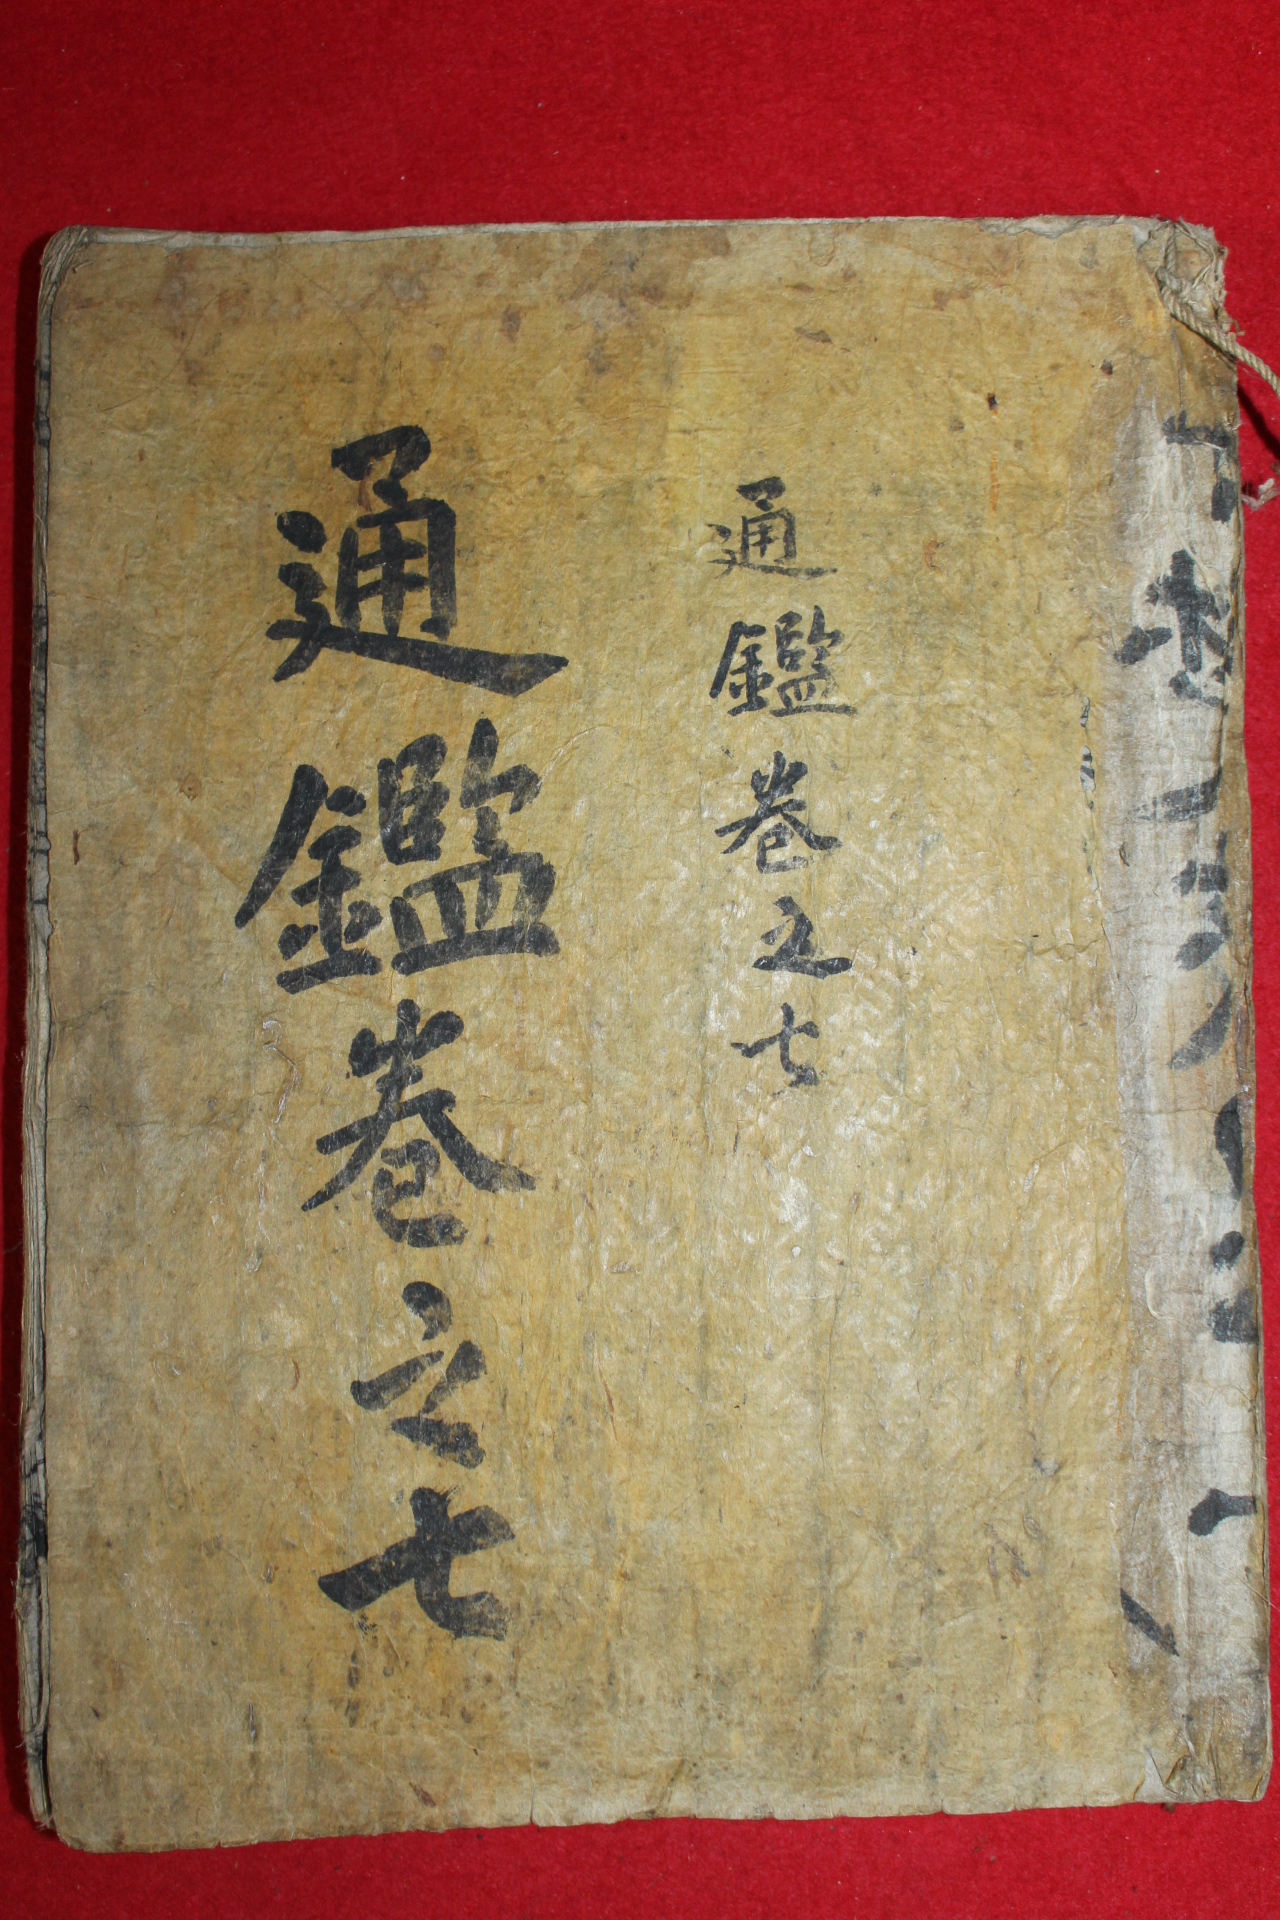 通鑑卷之七
通鑑卷之七